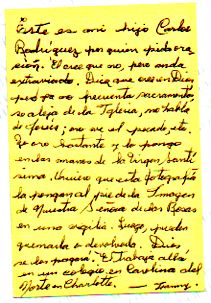 Este es mi hijo Carlos
Rodríguez por quien pido ora
ción. El cree que no, pero anda
extraviado. Dice que cree en Dios,
pero ya no frecuenta sacramentos
se aleja de la Iglesia, no habla
de Jesús; no ve el pecado, etc.
Yo oro bastante y lo pongo
en las manos de la Virgen Santí
sima. Quiero que esta fotografía
la pongan al pie de la Imagen
de Nuestra Señora de las Rosas
en una vigilia. Luego, pueden
quemarla o devolverla. Dios
se los pagará. El trabaja allá
en un colegio en Carolina del
Norte en Charlotte.